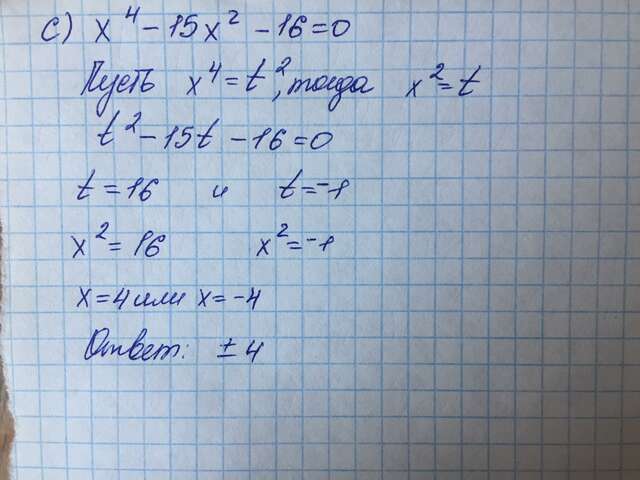 c) x⁴ - 15x² - 16 = 0
Пусть x⁴ = t², тогда x² = t
t² - 15t - 16 = 0
t = 16 и t = -1
x² = 16 x² = -1
x = 4 или x = -4
Ответ: ± 4